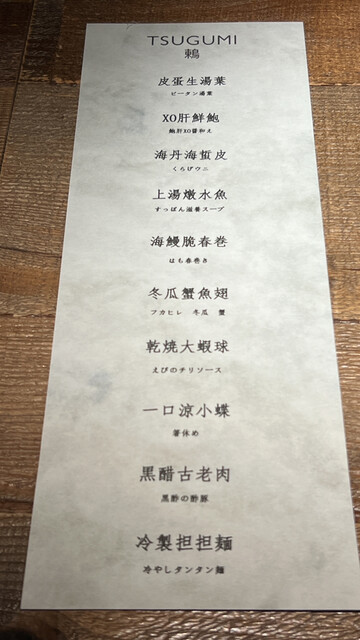 TSUGUMI
鶫
皮蛋生湯葉
ピータン湯葉
XO肝鮮鮑
鮑肝XO醤和え
海丹海蜇皮
くらげウニ
上湯燉水魚
すっぽん滋養スープ
海鰻脆春巻
はも春巻き
冬瓜蟹魚翅
フカヒレ 冬瓜 蟹
乾焼大蝦球
えびのチリソース
一口涼小蝶
箸休め
黒醋古老肉
黒酢の酢豚
冷製担担麺
冷やしタンタン麺